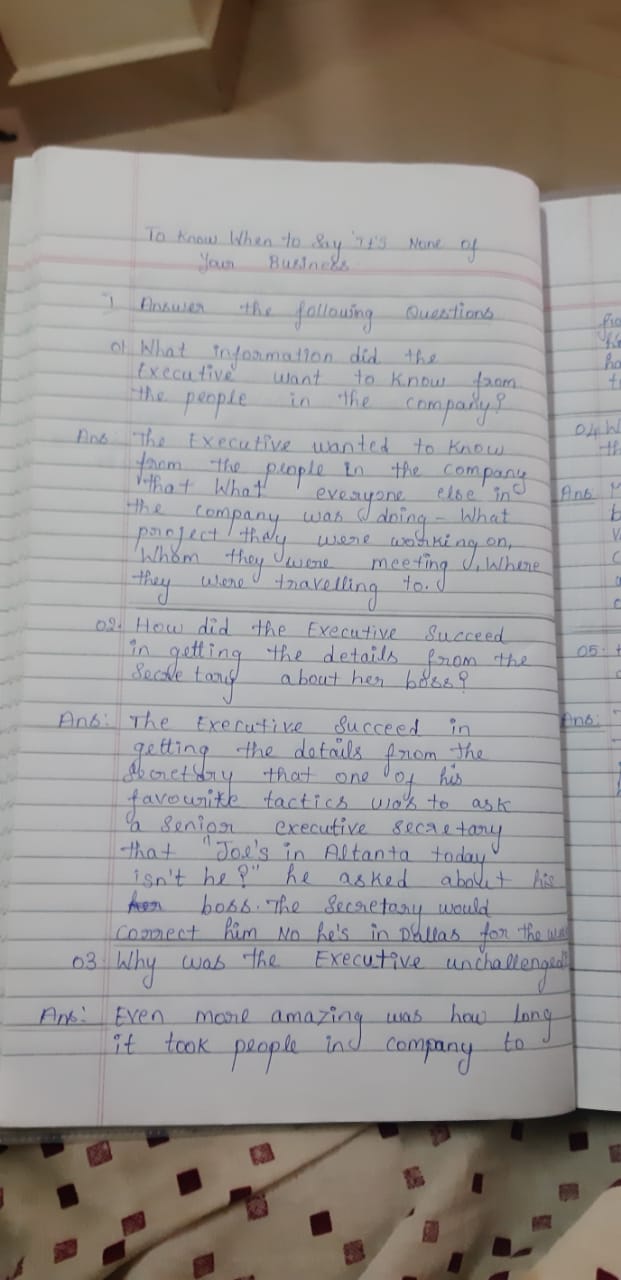 To Know When to Say "It's None of
Your Business
I Answer the following Questions
01. What information did the
Executive want to know from
the people in the company?
Ans The Executive wanted to know
from the people in the company
that What everyone else in
the company was doing - What
project they were working on,
Whom they were meeting, Where
they were travelling to.
02. How did the Executive Succeed
in getting the details from the
Secretary about her boss?
Ans: The Executive Succeed in
getting the details from the
Secretary that one of his
favourite tactics was to ask
a senior executive secretary
that "Joe's in Altanta today
isn't he?" he asked about his
boss. The Secretary would
correct him No he's in Dallas for the
03 Why was the Executive unchallenged?
Ans: Even more amazing was how long
it took people in company to
04
th
Ans
05.
Ans: